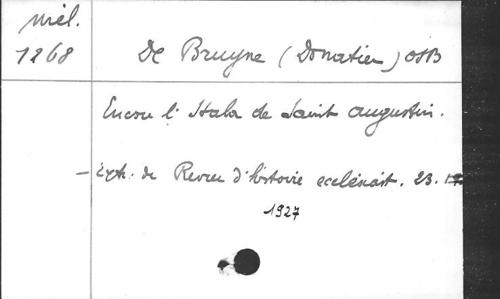 Mél.
1268
De Bruyne (Donatien) OSB
Encore l'Itala de Saint Augustin.
- Extr. de Revue d'histoire ecclésiast. 23.
1927